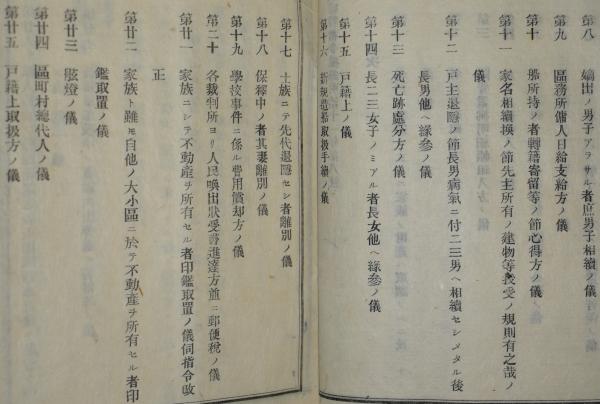 第八　嫡出ノ男子アラサル者庶男子相續ノ儀
第九　區務所傭人日給支給方ノ儀
第十　船所持ノ者轉籍寄留等ノ節心得方ノ儀
第十一　家名相續換ノ節先主所有ノ建物等授受ノ規則有之哉ノ
儀
第十二　戸主退隱ノ節長男病氣ニ付二三男ヘ相續セシメタル後
長男他ヘ緣參ノ儀
第十三　死亡跡處分方ノ儀
第十四　長二三女子ノミアル者長女他ヘ緣參ノ儀
第十五　戸籍上ノ儀
第十六　新規造船取扱手續ノ儀
第十七　士族ニテ先代退隱セシ者離別ノ儀
第十八　保釋中ノ者其妻離別ノ儀
第十九　學校事件ニ係ル費用償却方ノ儀
第二十　各裁判所ヨリ人民喚出狀受書進達方並ニ郵便稅ノ儀
第廿一　家族ニシテ不動產ヲ所有セル者印鑑取置ノ儀伺指令改
正
第廿二　家族ト雖モ自他ノ大小區ニ於テ不動產ヲ所有セル者印
鑑取置ノ儀
第廿三　舷燈ノ儀
第廿四　區町村總代人ノ儀
第廿五　戸籍上取扱方ノ儀